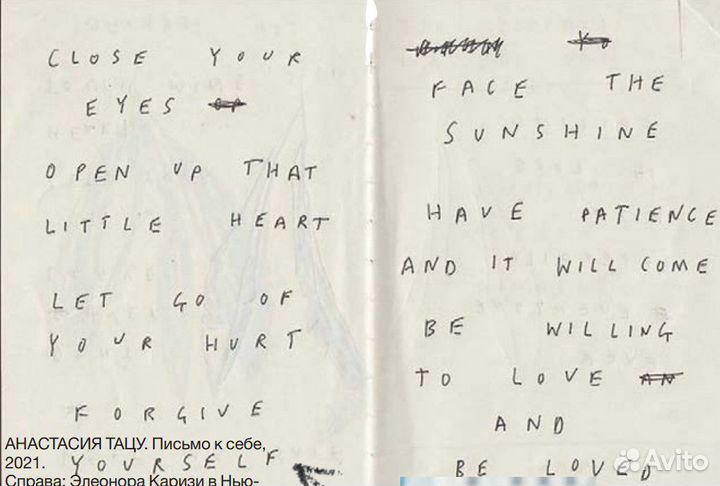 CLOSE YOUR
EYES
OPEN UP THAT
LITTLE HEART
LET GO OF
YOUR HURT
FORGIVE
YOURSELF
АНАСТАСИЯ ТАЦУ. Письмо к себе,
2021.
Справа: Элеонора Каризи в Нью-
FACE THE
SUNSHINE
HAVE PATIENCE
AND IT WILL COME
BE WILLING
TO LOVE
AND
BE LOVED
Avito